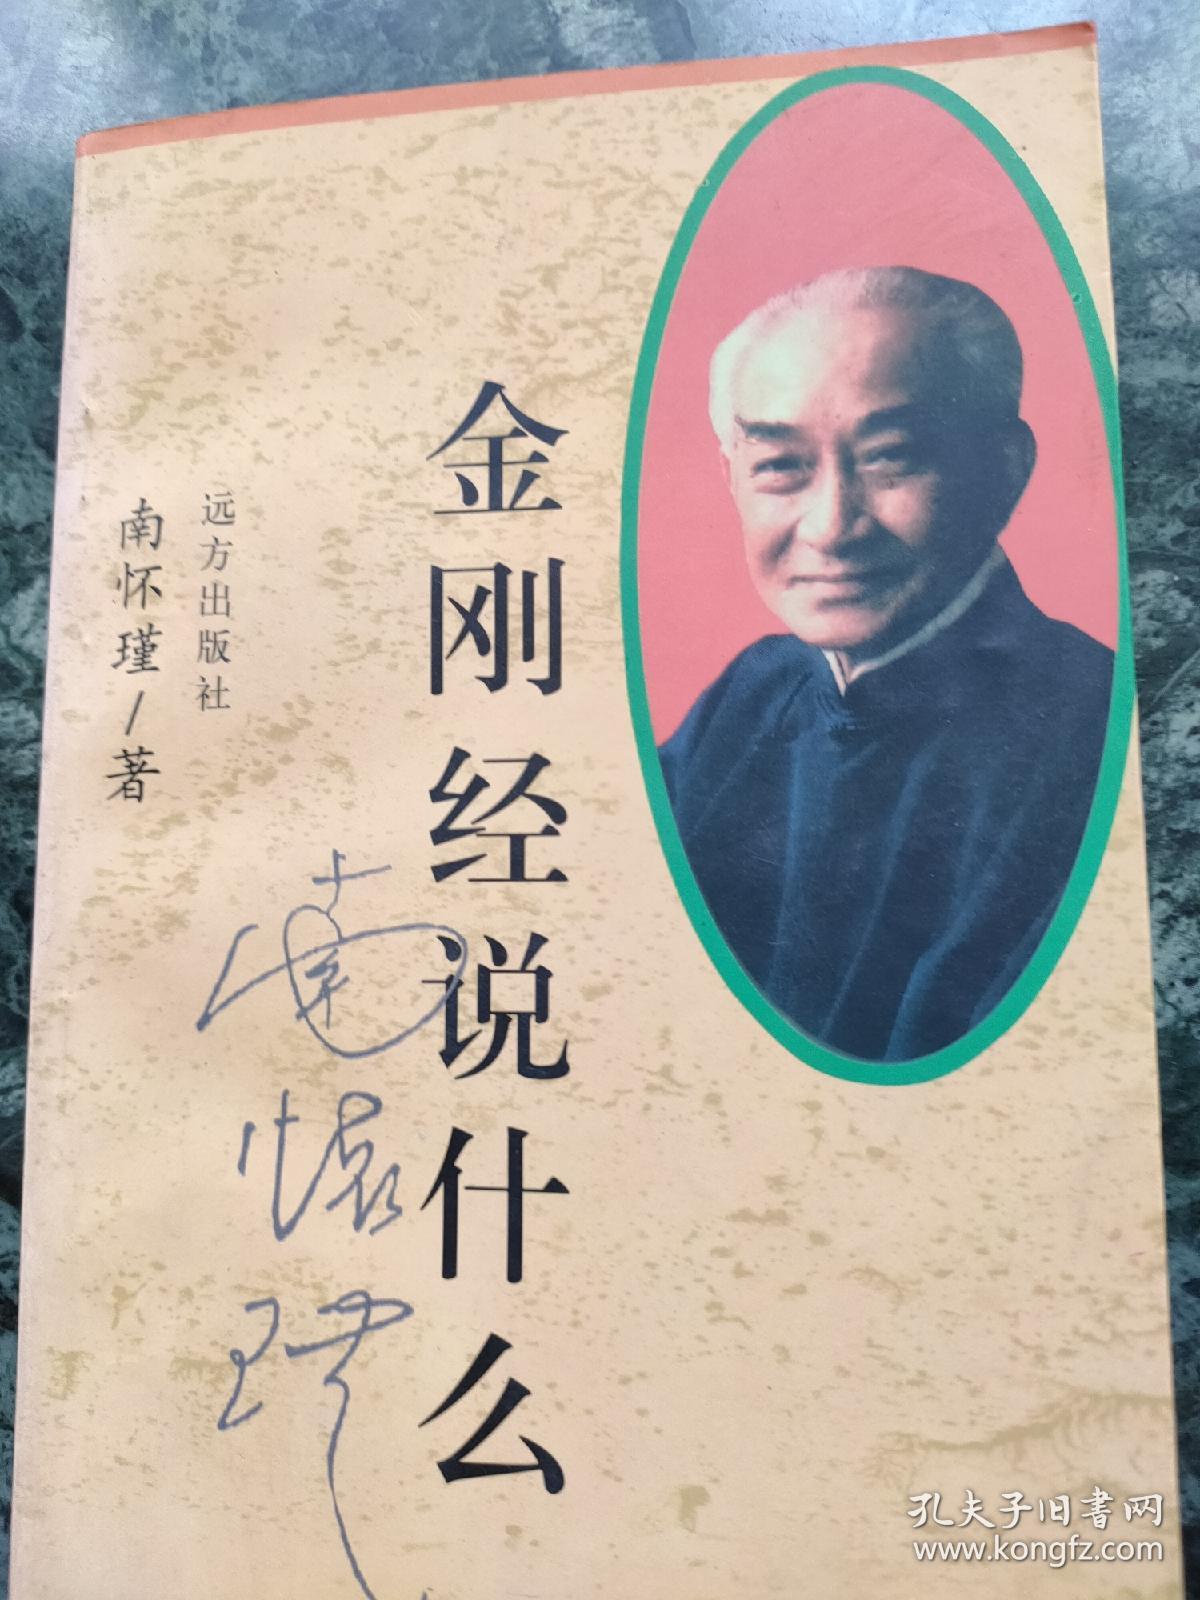 金刚经说什么
远方出版社
南怀瑾/著
南懷瑾
孔夫子旧書网
www.kongfz.com